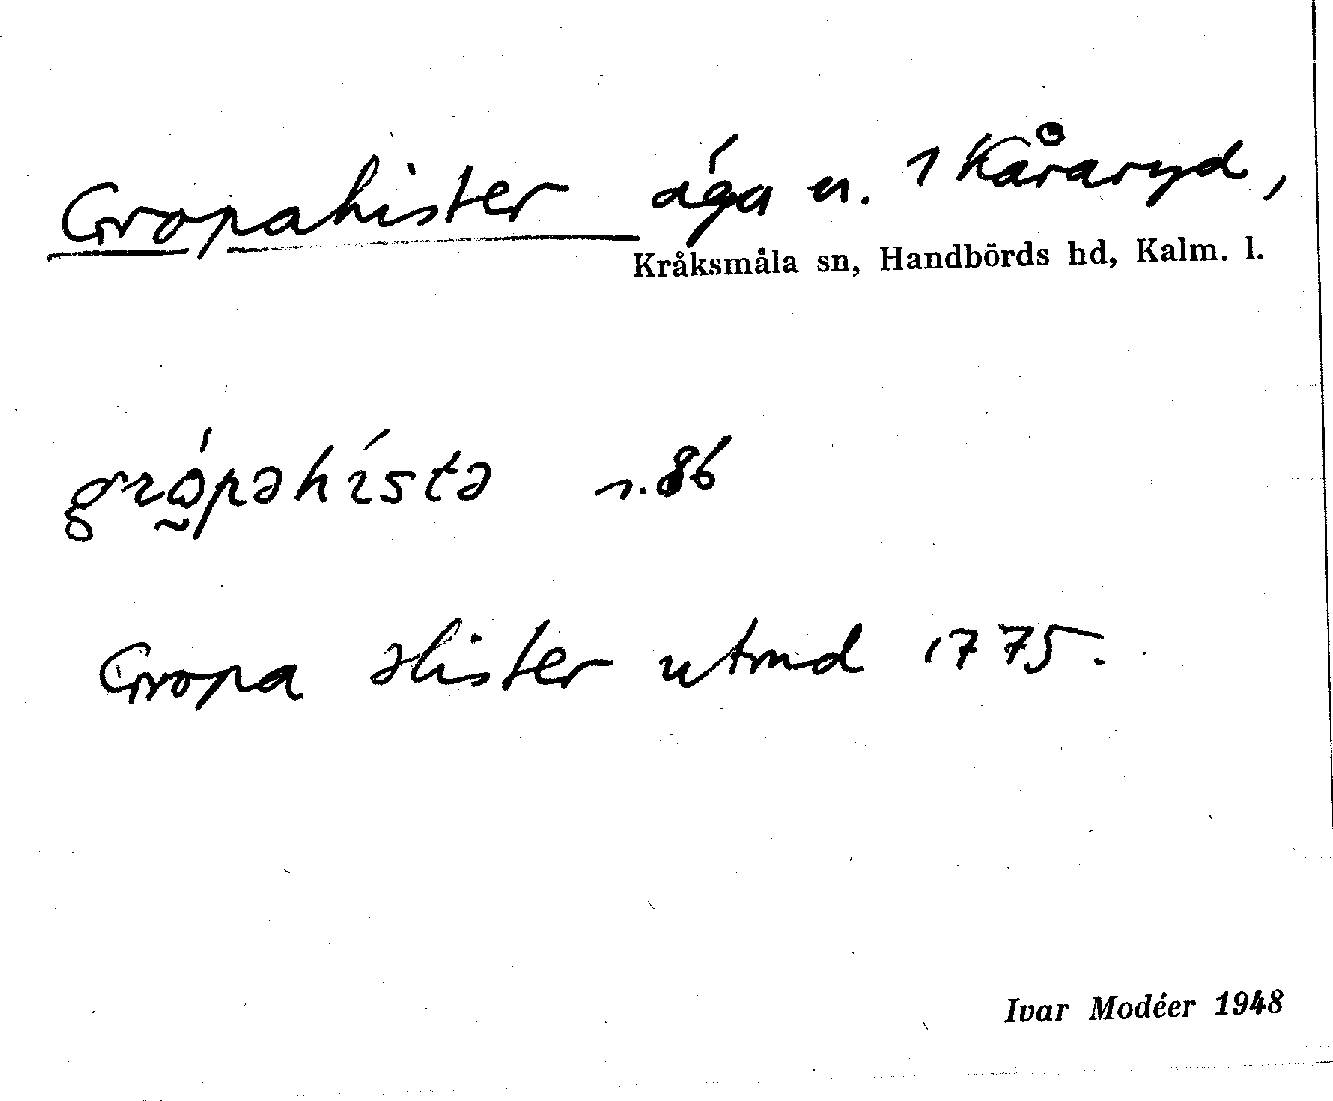 Gropahister äga n. 1 Kåraryd,
Kråksmåla sn, Handbörds hd, Kalm. l.
grópəhístə r. 86
Gropa Hister utmd 1775.
Ivar Modéer 1948